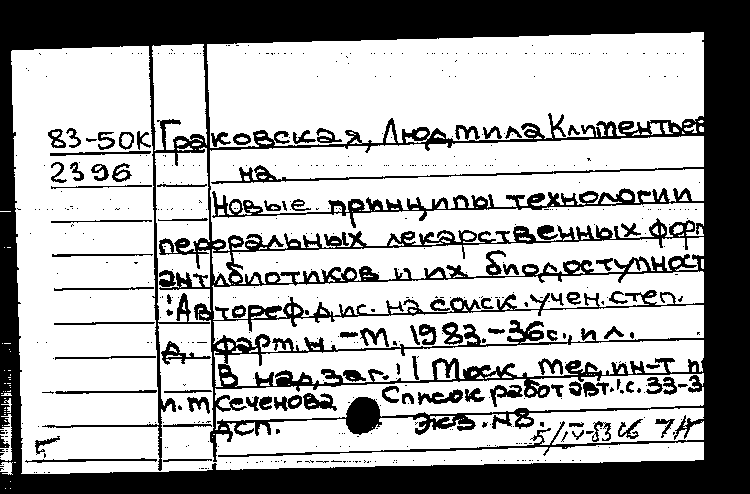 83-50К Граковская, Людмила Климентьев
2396 на.
Новые принципы технологии
пероральных лекарственных форм
антибиотиков и их биодоступност
!Автореф.дис. на соиск. учен. степ.
д. фарм.н. -М., 1983.-36с., ил.
В надзаг.! 1 Моск. мед. ин-т
и.м Сеченова Список работ авт.!.с. 33-3
ДСП. Экз.N8.
5/IV-83
5